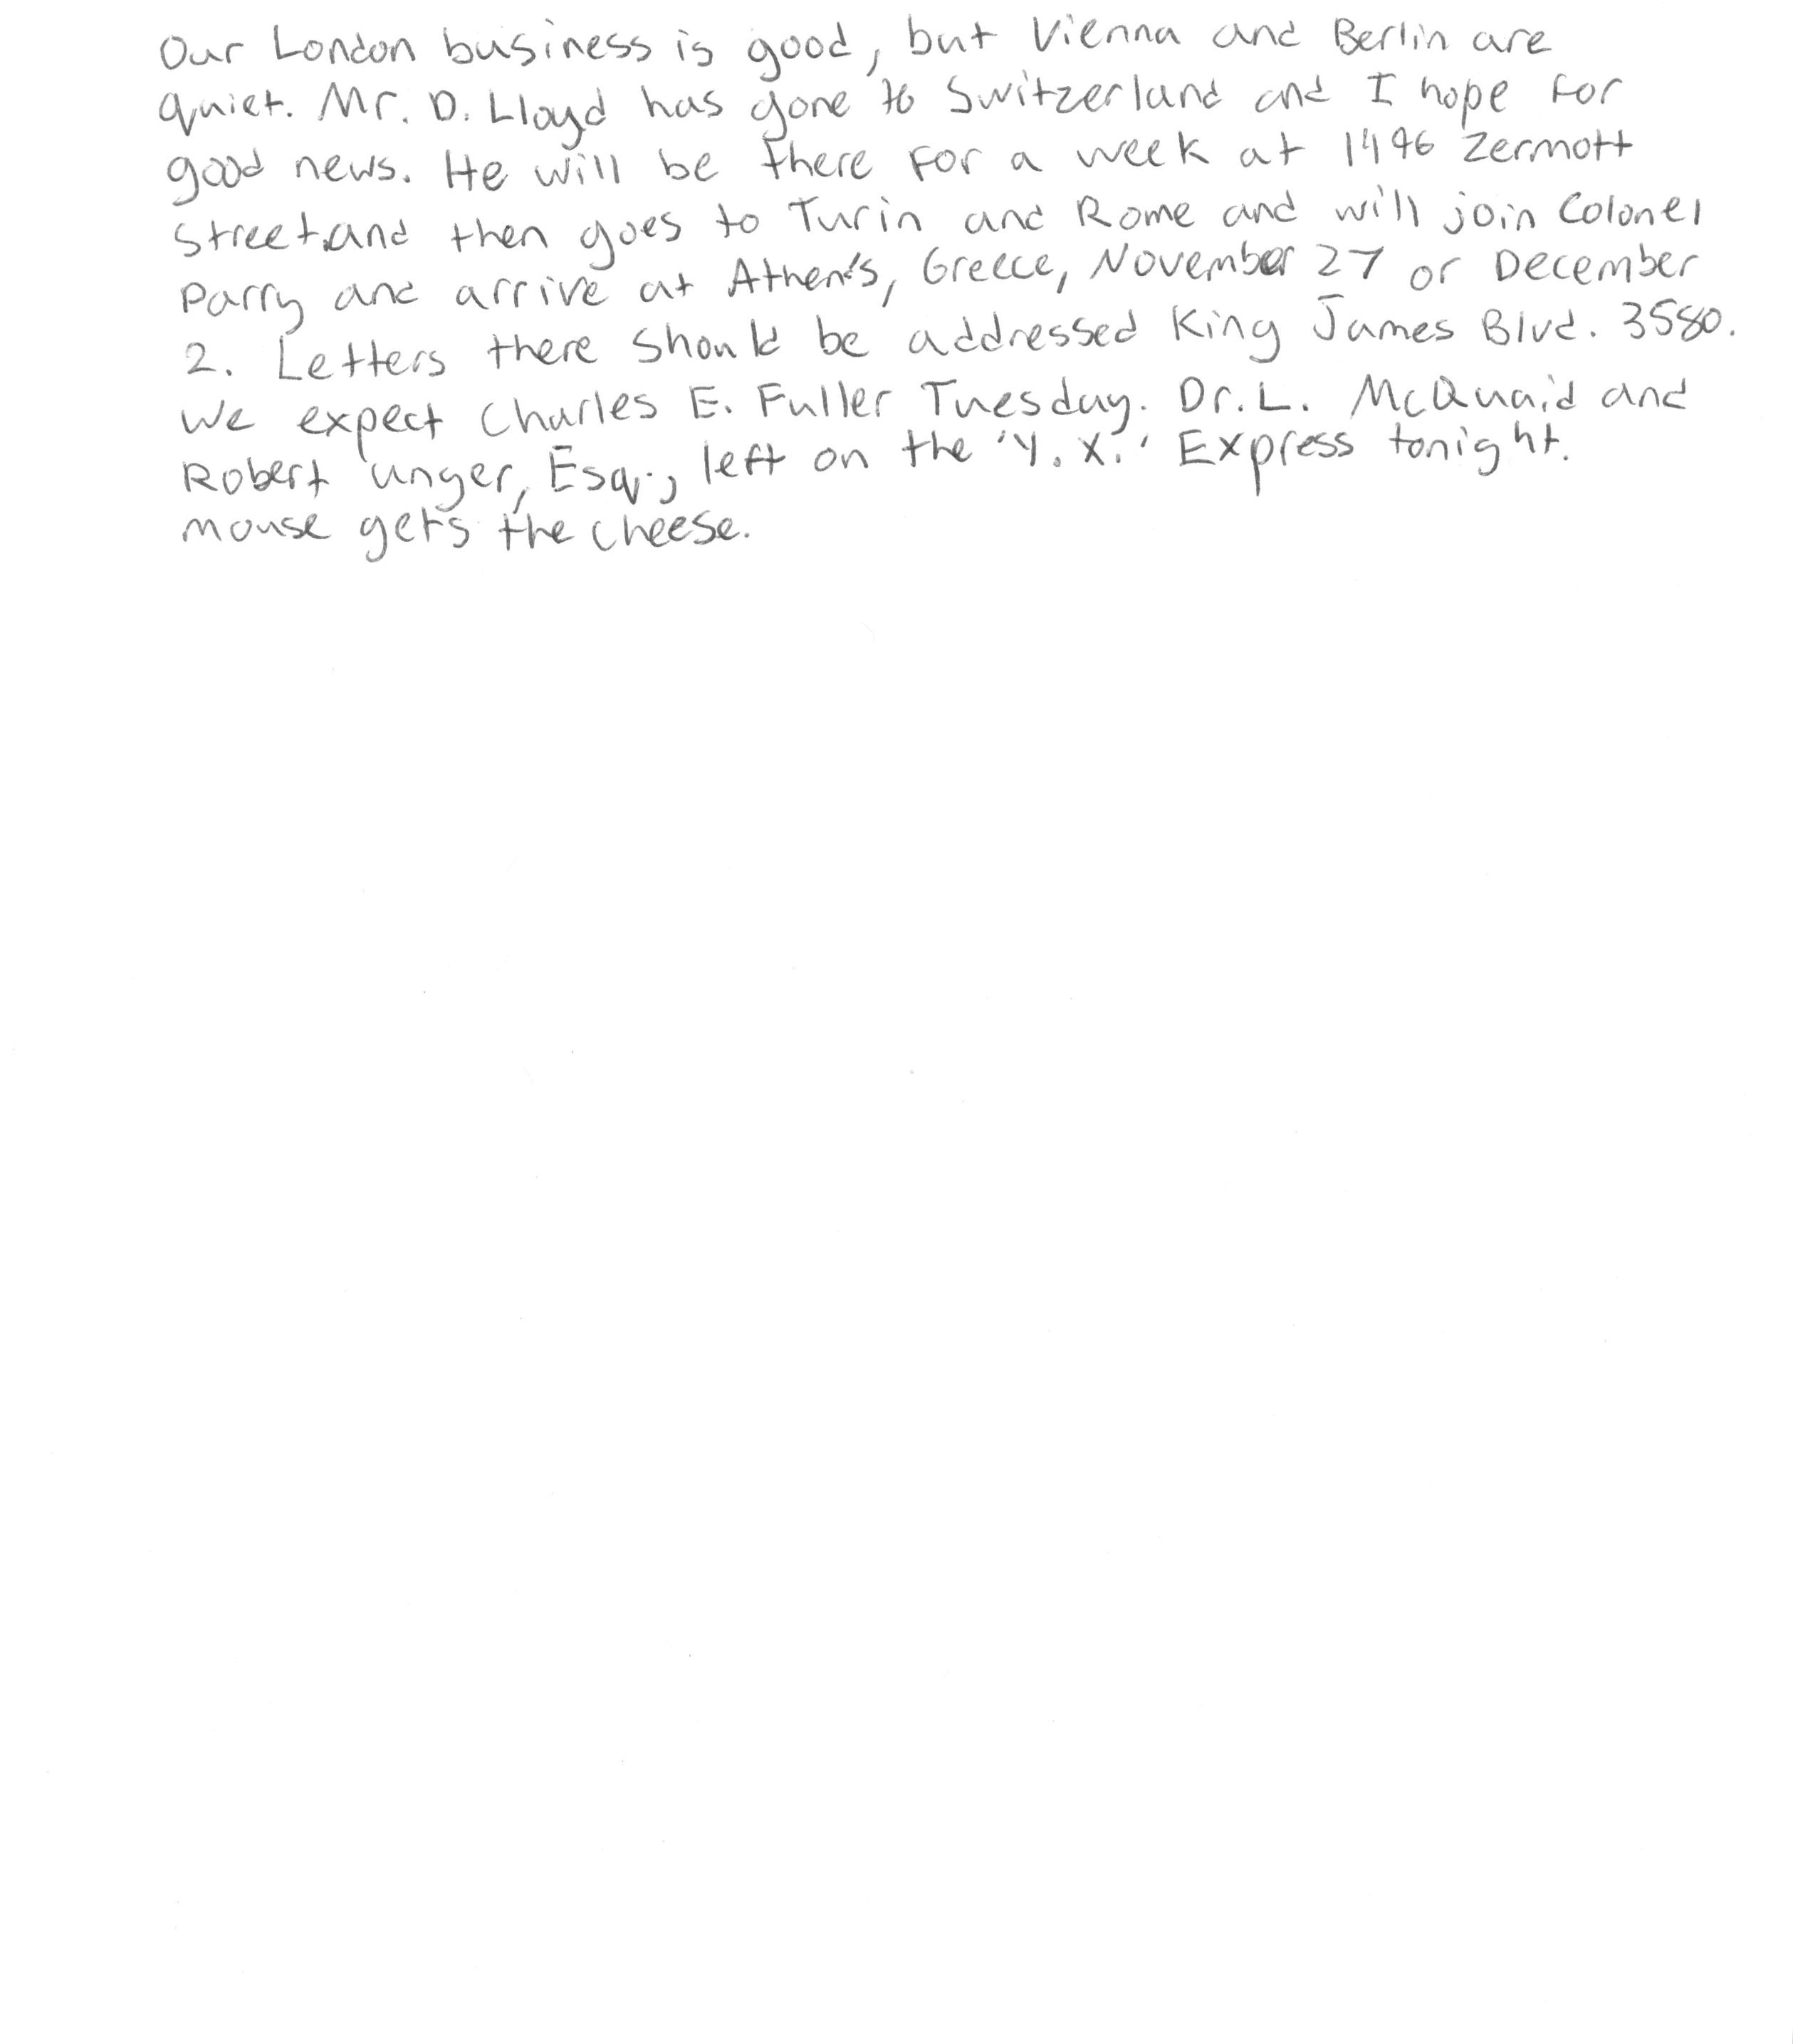 Our London business is good, but Vienna and Berlin are
quiet. Mr. D. Lloyd has gone to Switzerland and I hope for
good news. He will be there for a week at 1496 Zermott
Street and then goes to Turin and Rome and will join Colonel
Parry and arrive at Athens, Greece, November 27 or December
2. Letters there should be addressed King James Blvd. 3580.
We expect Charles E. Fuller Tuesday. Dr. L. McQuaid and
Robert Unger, Esq., left on the 'Y. X.' Express tonight.
mouse gets the cheese.